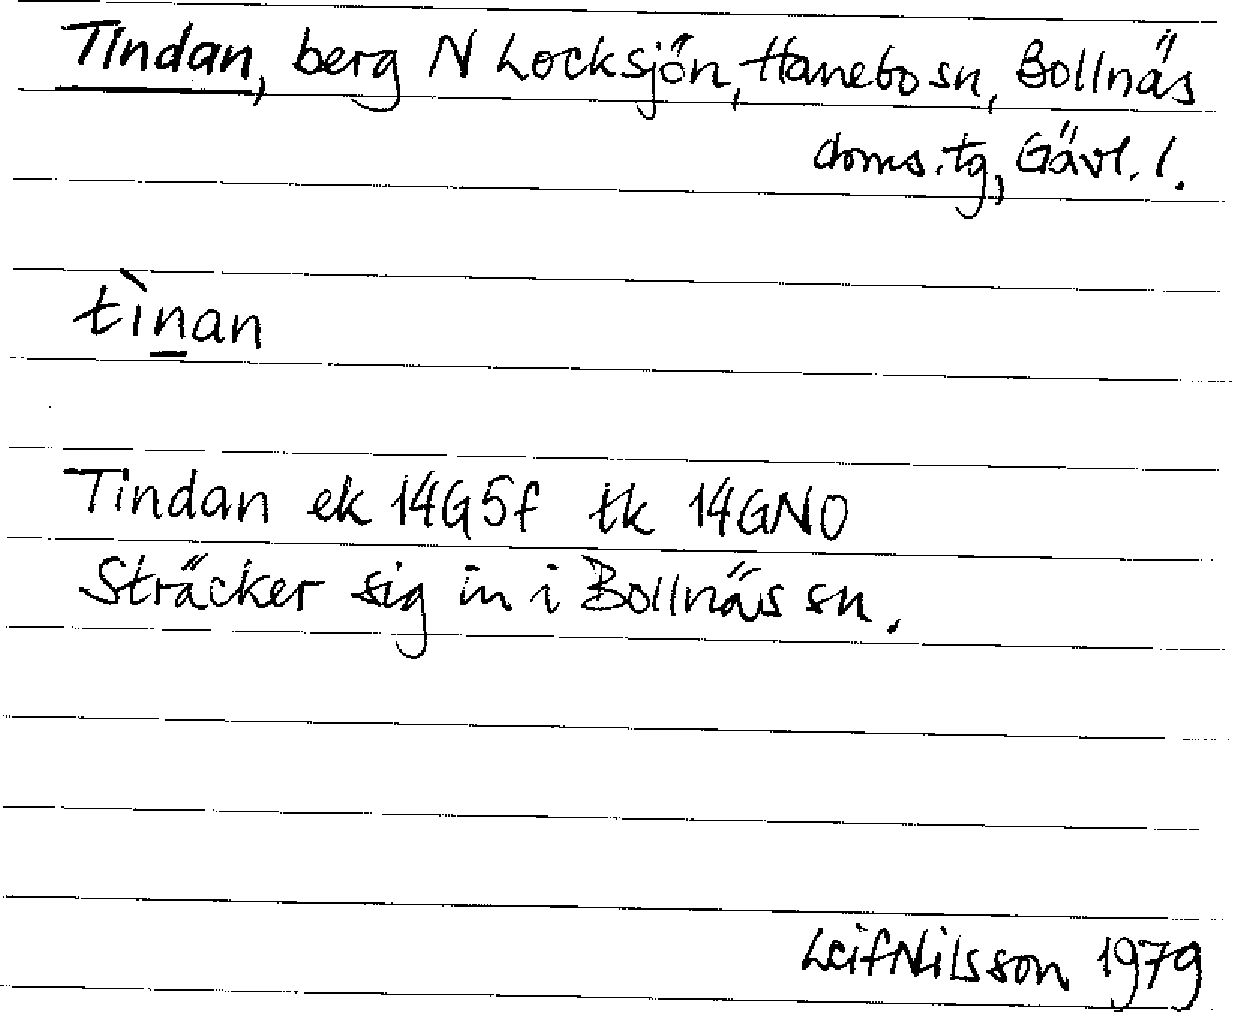 Tindan, berg N Locksjön, Hanebo sn, Bollnäs
doms.tg, Gävl. l.
tìn̲an
Tindan ek 14G5f tk 14GNO
Sträcker sig in i Bollnäs sn.
Leif Nilsson 1979